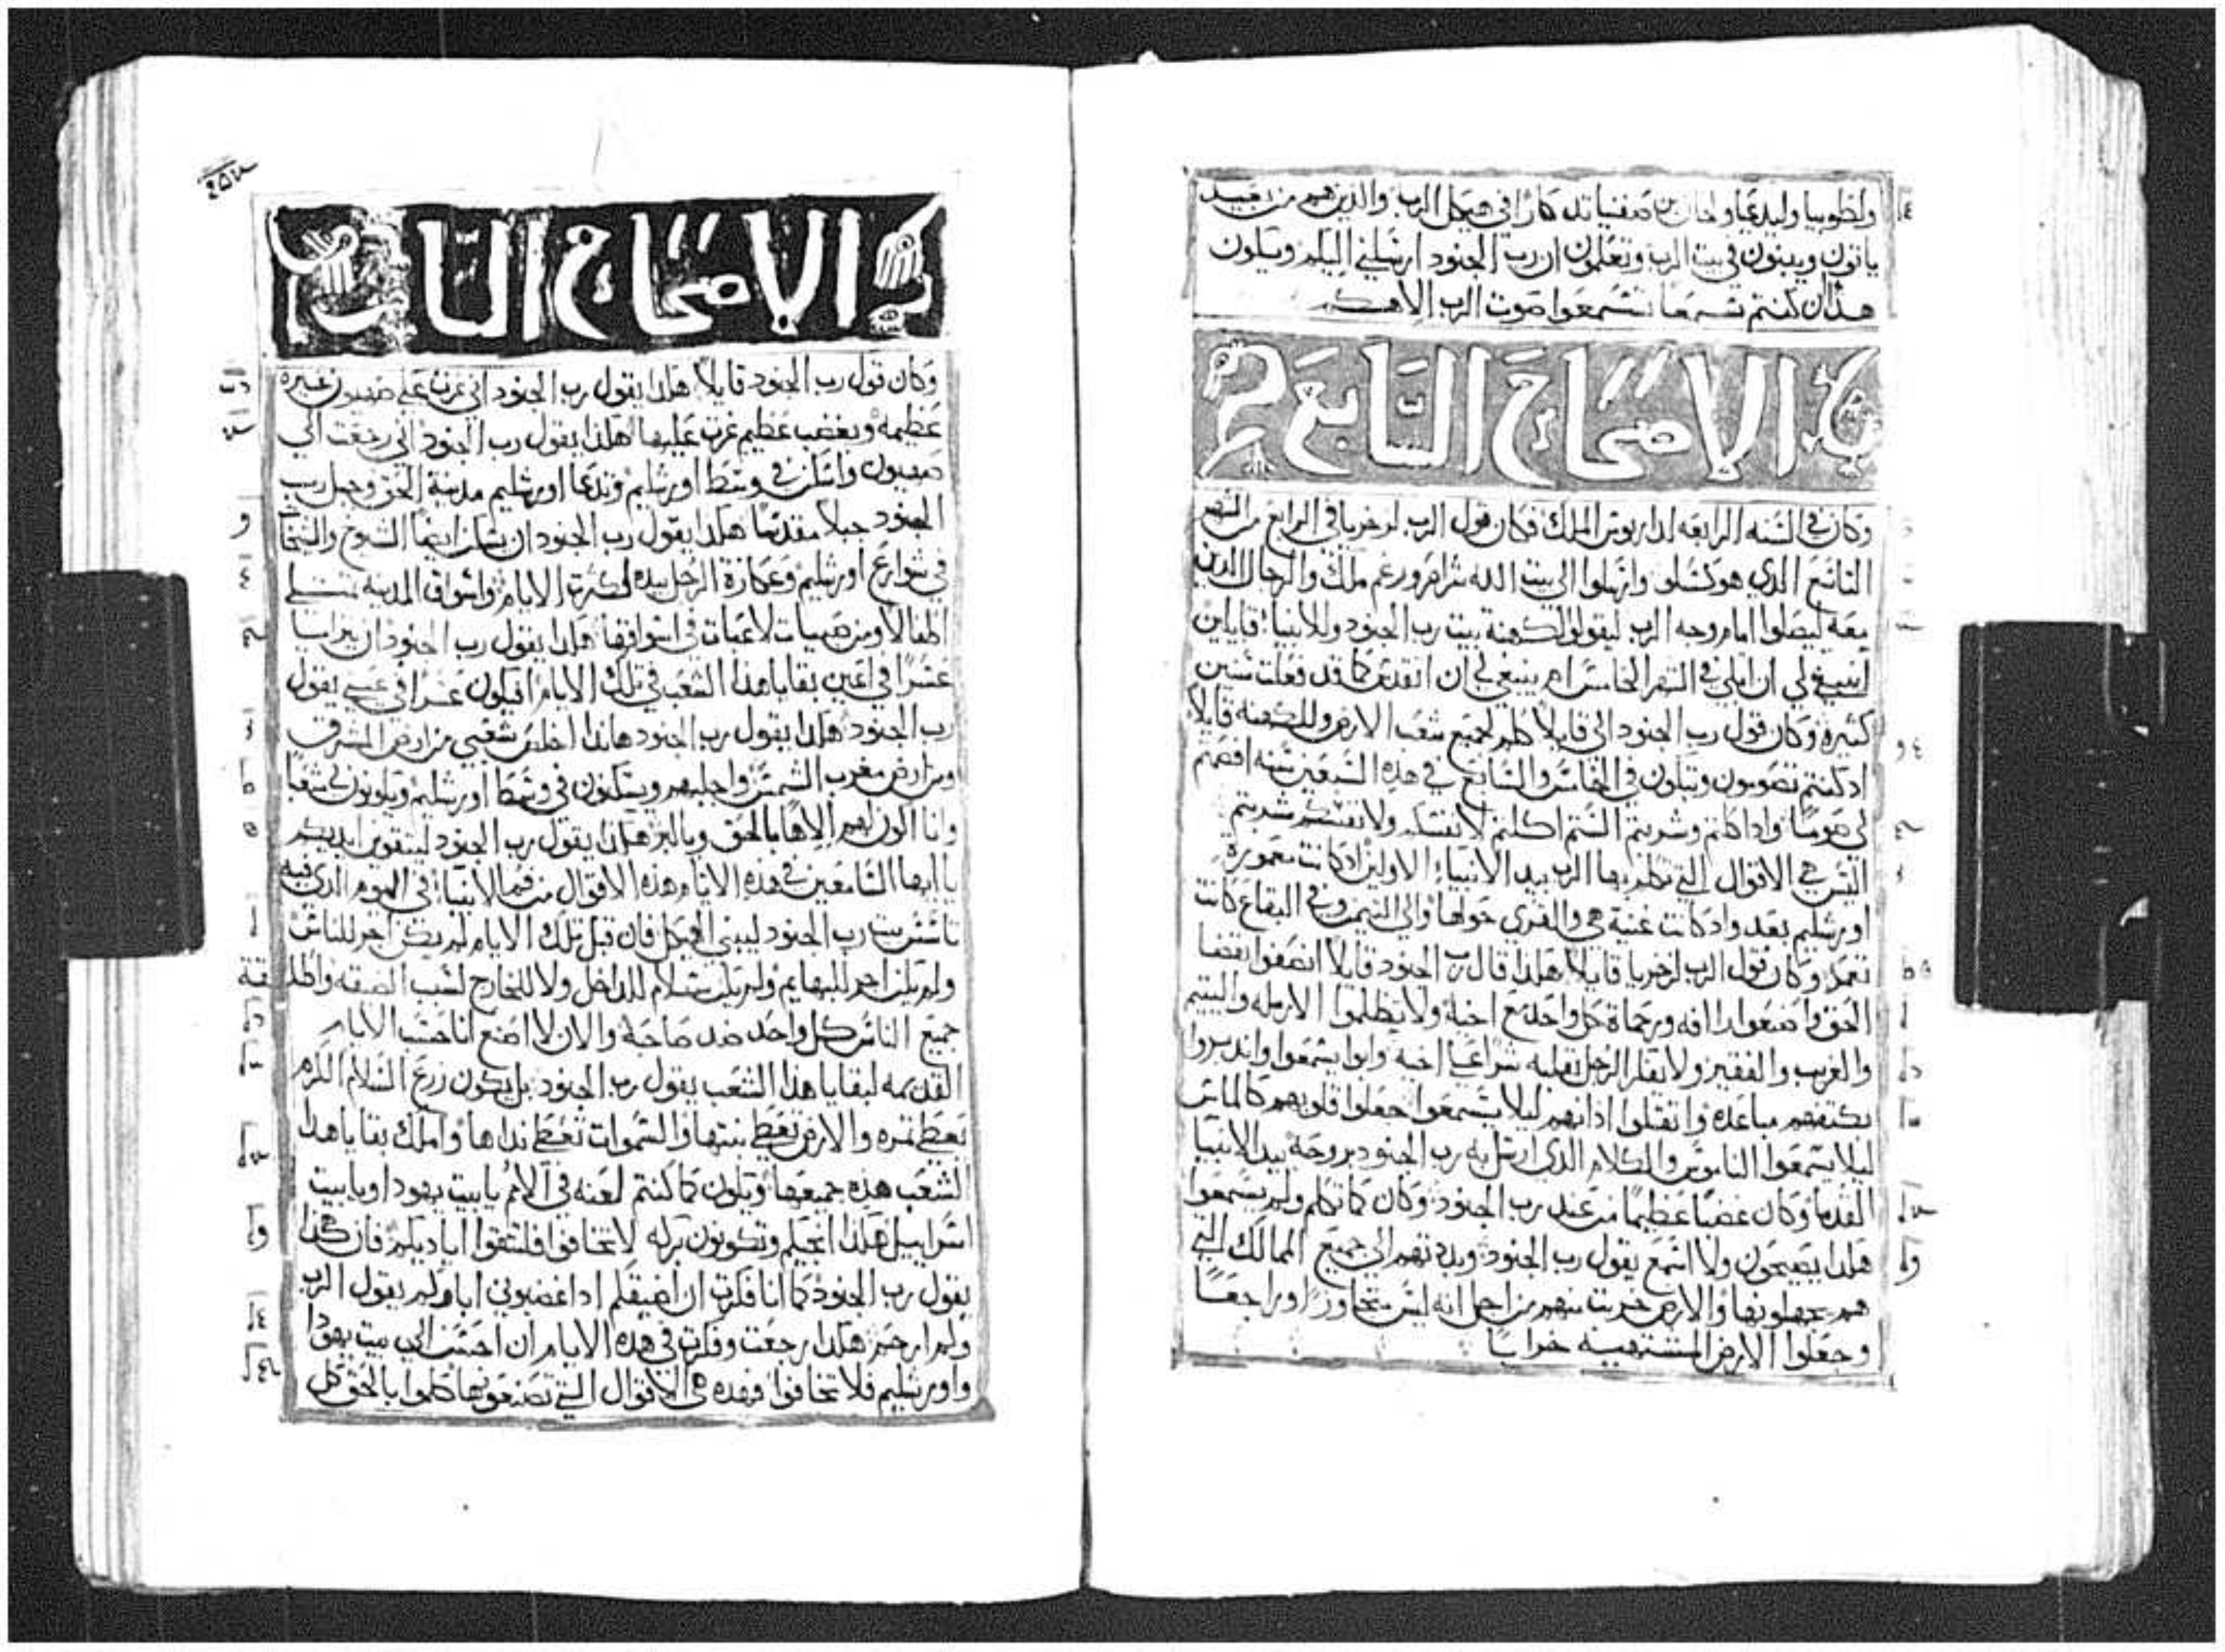 ولطوبيا وليدعيا ولحان بن صفنيا تدكارا في هيكل الرب والذين هم من بعيد
ياتون ويبنون في بيت الرب وتعلمون ان رب الجنود ارسلني اليكم ويكون
هذا ان كنتم تسمعا تسمعوا صوت الرب الاهكم
الاصحاح السابع
وكان في السنه الرابعه لداريوس الملك فكان قول الرب لزخريا في الرابع من الشهر
التاسع الدي هو كسلو وارسلوا الي بيت الله شراصر ورغم ملك والرجال الدين
معه ليصلوا امام وجه الرب ليقولوا لكهنة بيت رب الجنود وللانبيا قايلين
اينبغي لي ان ابكي في الشهر الخامس ام ينبغي لي ان اتقدس كما قد فعلت سنين
كثيره وكان قول رب الجنود الي قايلا كلم لجميع شعب الارض وللكهنه قايلا
اد كنتم تصومون وتبكون في الخامس والسابع في هذه السبعين سنه افصمتم
لي صوما وادا كلتم وشربتم الستم اكلتم لانفسكم ولانفسكم شربتم
اليس هي الاقوال التي تكلم بها الرب بيد الانبياء الاولين اد كانت معموره
اورشليم بعد واد كانت غنية هي والقري حولها والي التيمن وفي البقاع كانت
تعمد وكان قول الرب لزخريا قايلا هكدا قال رب الجنود قايلا انصفوا بقضا
الحق واصنعوا رافه ورحماة كل واحد مع اخيه ولا تظلموا الارمله واليتيم
والغريب والفقير ولا يفكر الرجل بقلبه شرا علي اخيه وابوا يسمعوا واندبروا
بكتفهم مباعده واتقلوا ادانهم ليلا يسمعوا وجعلوا قلوبهم كالماس
ليلا يسمعوا الناموس والكلام الدي ارسل به رب الجنود بروحه بيد الانبيا
القدما وكان غضبا عظيما من عند رب الجنود وكان كما تكلم ولم يسمعوا
هكدا يصيحون ولا اسمع يقول رب الجنود وبددتهم الي جميع الممالك التي
هم يجهلونها والارض خربت منهم من اجل انه ليس متجاوزا وراجعا
وجعلوا الارض المشتهيه خرابا
الاصحاح الثامن
وكان قول رب الجنود قايلا هكدا يقول رب الجنود اني غرت علي صهيون غيره
عظيمه وبغضب عظيم غرت عليها هكدا يقول رب الجنود اني رجعت الي
صهيون واسكن في وسط اورشليم وتدعا اورشليم مدينة الحق وجبل رب
الجنود جبلا مقدسا هكدا يقول رب الجنود ان يسكن ايضا الشيوخ والشيخات
في شوارع اورشليم وعكازة الرجل بيده لكثرت الايام واسواق المدينه تمتلي
اطفالا ومن صبيات لاعبات في اسواقها هكدا يقول رب الجنود ان يرا سيا
عسرا في اعين بقايا هدا الشعب في تلك الايام افيكون عسرا في عيني يقول
رب الجنود هكدا يقول رب الجنود هاندا اخلص شعبي من ارض المشرق
ومن ارض مغرب الشمس واجلبهم ويسكنون في وسط اورشليم ويكونون لي شعبا
وانا اكون لهم الاها بالحق وبالبر هكدا يقول رب الجنود لتتقوي ايديكم
يا ايها السامعين في هذه الايام هذه الاقوال من فم الانبيا في اليوم الدي فيه
تاسس بيت رب الجنود ليبني الهيكل فان قبل تلك الايام لم يكن اجر للناس
ولم يكن اجر للبهايم ولم يكن سلام للداخل ولا للخارج لسبب الضيقه واطلقة
جميع الناس كل واحد ضد صاحبه والان لا اصنع انا حسب الايام
القديمه لبقايا هذا الشعب يقول رب الجنود بل يكون زرع السلام الكرم
يعطي تمره والارض تعطي نبتها والسموات تعطي نداها واملك بقايا هدا
الشعب هذه جميعها ويكون كما كنتم لعنه في الامم يا بيت يهودا ويا بيت
اسراييل هكدا انجيكم وتكونون بركه لا تخافوا فلتتقوا اياديكم فان هكدا
يقول رب الجنود كما انا فكرت ان اضيقكم اد اغضبوني اباوكم يقول الرب
ولم ارحم هكدا رجعت وفكرت في هذه الايام ان احسن الي بيت يهودا
واورشليم فلا تخافوا فهذه هي الاقوال التي تصنعونها كلموا بالحق كل